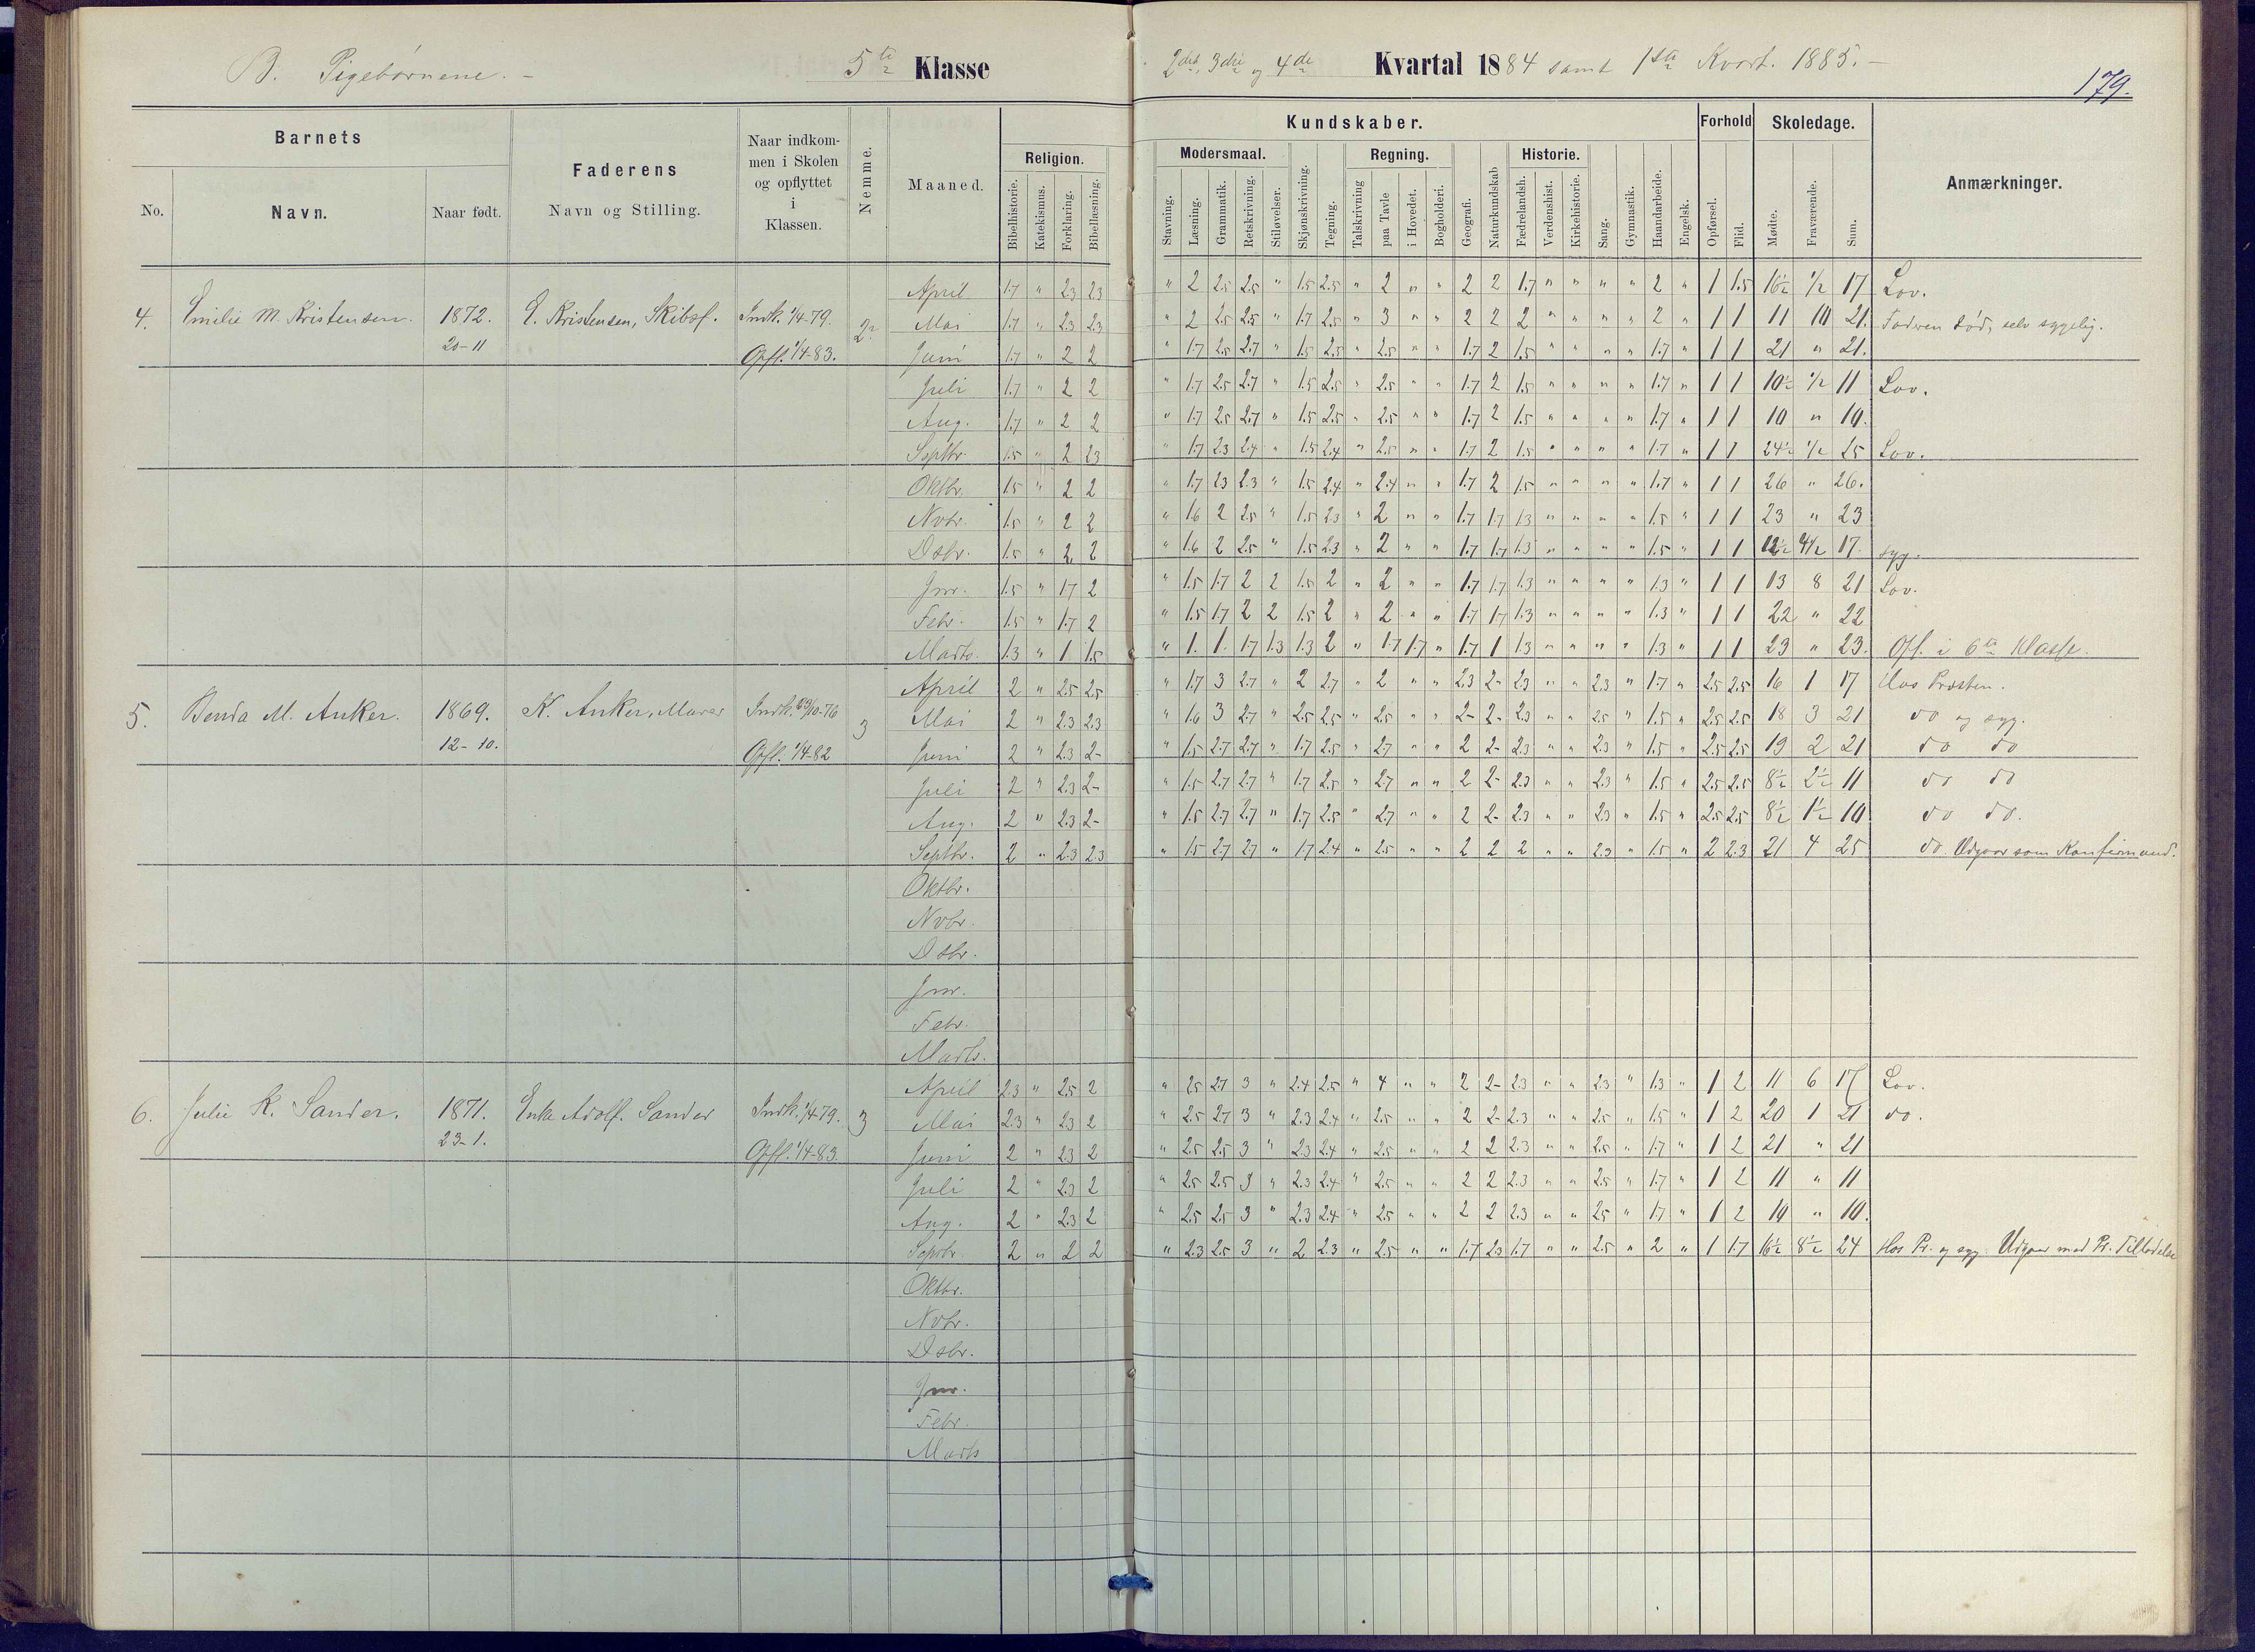 B. Pigebørnene. –
5te Klasse
2det, 3die og 4de Kvartal 1884 samt 1ste Kvart. 1885. –
179.
Barnets
No.
Navn.
Naar født.
Faderens
Navn og Stilling.
Naar indkom-
men i Skolen
og opflyttet
i
Klassen.
Nemme.
Maaned.
Kundskaber.
Religion.
Bibelhistorie.
Katekismus.
Forklaring.
Bibellæsning.
Modersmaal.
Stavning.
Læsning.
Grammatik.
Retskrivning.
Stiløvelser.
Skjønskrivning.
Tegning.
Regning.
Talskrivning
paa Tavle
i Hovedet.
Bogholderi.
Geografi.
Naturkundskab
Historie.
Fædrelandsh.
Verdenshist.
Kirkehistorie.
Sang.
Gymnastik.
Haandarbeide.
Engelsk.
Forhold
Opførsel.
Flid.
Skoledage.
Mødte.
Fraværende.
Sum.
Anmærkninger.
4. Emilie M. Kristensen. 1872. E. Kristensen, Skibsf. Indk. 1/4-79. 2
20-11 Opfl. 1/4-83.
April 1.7 " 2.3 2.3 " 2 2.5 2.5 " 1.5 2.5 " 2 " " 2 2 1.7 " " " " 2 " 1 1.5 16½ ½ 17 Lov.
Mai 1.7 " 2.3 2.3 " 2 2.5 2.5 " 1.7 2.5 " 3 " " 2 2 2 " " " " 2 " 1 1 11 10 21. Faderen død, selv sygelig.
Juni 1.7 " 2 2 " 1.7 2.5 2.7 " 1.5 2.5 " 2.5 " " 1.7 2 1.5 " " " " 1.7 " 1 1 21 " 21.
Juli 1.7 " 2 2 " 1.7 2.5 2.7 " 1.5 2.5 " 2.5 " " 1.7 2 1.5 " " " " 1.7 " 1 1 10½ ½ 11 Lov.
Aug. 1.7 " 2 2 " 1.7 2.5 2.7 " 1.5 2.5 " 2.5 " " 1.7 2 1.5 " " " " 1.7 " 1 1 10 " 10.
Septbr. 1.5 " 2 2.3 " 1.7 2.3 2.4 " 1.5 2.4 " 2.5 " " 1.7 2 1.5 " " " " 1.7 " 1 1 24½ ½ 25 Lov.
Oktbr. 1.5 " 2 2 " 1.7 2.3 2.3 " 1.5 2.4 " 2.4 " " 1.7 2 1.5 " " " " 1.7 " 1 1 26 " 26.
Nvbr. 1.5 " 2 2 " 1.6 2 2.5 " 1.5 2.3 " 2 " " 1.7 1.7 1.3 " " " " 1.5 " 1 1 23 " 23
Dsbr. 1.5 " 2 2 " 1.6 2 2.5 " 1.5 2.3 " 2 " " 1.7 1.7 1.3 " " " " 1.5 " 1 1 12½ 4½ 17. syg.
Jnr. 1.5 " 1.7 2 " 1.5 1.7 2 2 1.5 2 " 2 " " 1.7 1.7 1.3 " " " " 1.3 " 1 1 13 8 21 Lov.
Febr. 1.5 " 1.7 2 " 1.5 1.7 2 2 1.5 2 " 2 " " 1.7 1.7 1.3 " " " " 1.3 " 1 1 22 " 22
Marts. 1.3 " 1 1.5 " 1. 1. 1.7 1.3 1.3 2 " 1.7 1.7 " 1.7 1 1.3 " " " " 1.3 " 1 1 23 " 23. Opf. i 6te Klasse.
5. Benda M. Anker. 1869. K. Anker, Murer Indk. 10-76 3
12-10. Opfl. 1/4-82
April 2 " 2.5 2.5 " 1.7 3 2.7 " 2 2.7 " 2 " " 2.3 2- 2.3 " " 2.3 " 1.7 " 2.5 2.5 16 1 17 Hos Præsten.
Mai 2 " 2.3 2.3 " 1.6 3 2.7 " 2.5 2.5 " 2.5 " " 2- 2- 2.3 " " 2.5 " 1.5 " 2.5 2.5 18 3 21 do og syg.
Juni 2 " 2.3 2- " 1.5 2.7 2.7 " 1.7 2.5 " 2.7 " " 2 2- 2.3 " " 2.3 " 1.5 " 2.5 2.5 19 2 21 do do
Juli 2 " 2.3 2- " 1.5 2.7 2.7 " 1.7 2.5 " 2.7 " " 2 2- 2.3 " " 2.3 " 1.5 " 2.5 2.5 8½ 2½ 11 do do
Aug. 2 " 2.3 2- " 1.5 2.7 2.7 " 1.7 2.5 " 2.7 " " 2 2- 2.3 " " 2.3 " 1.5 " 2.5 2.5 8½ 1½ 10 do do.
Septbr. 2 " 2.3 2.3 " 1.5 2.7 2.7 " 1.7 2.4 " 2.5 " " 2 2 2 " " 2.3 " 1.5 " 2 2.3 21 4 25 do. Udgaar som Konfirmand.
Oktbr.
Nvbr.
Dsbr.
Jnr.
Febr.
Marts.
6. Julie K. Sander. 1871. Enke Adolf. Sander Indk. 1/4-79. 3
23-1. Opfl. 1/4-83.
April 2.3 " 2.5 2 " 2.5 2.7 3 " 2.4 2.5 " 4 " " 2 2- 2.3 " " 2.3 " 1.3 " 1 2 11 6 17 Lov.
Mai 2.3 " 2.3 2 " 2.5 2.7 3 " 2.3 2.4 " 2.5 " " 2 2- 2.3 " " 2.5 " 1.5 " 1 2 20 1 21 do.
Juni 2 " 2.3 2 " 2.5 2.5 3 " 2.3 2.4 " 2.5 " " 2 2 2.3 " " 2.5 " 1.7 " 1 2 21 " 21
Juli 2 " 2.3 2 " 2.5 2.5 3 " 2.3 2.4 " 2.5 " " 2 2 2.3 " " 2.5 " 1.7 " 1 2 11 " 11
Aug. 2 " 2.3 2 " 2.5 2.5 3 " 2.3 2.4 " 2.5 " " 2 2 2.3 " " 2.5 " 1.7 " 1 2 10 " 10.
Septbr. 2 " 2 2 " 2.3 2.5 3 " 2 2.3 " 2.5 " " 1.7 2.3 1.7 " " 2.5 " 2 " 1 1.7 16½ 8½ 24 Hos Pr. og syg. Udgaar med Pr. Tilladelse
Oktbr.
Nvbr.
Dsbr.
Jnr.
Febr.
Marts